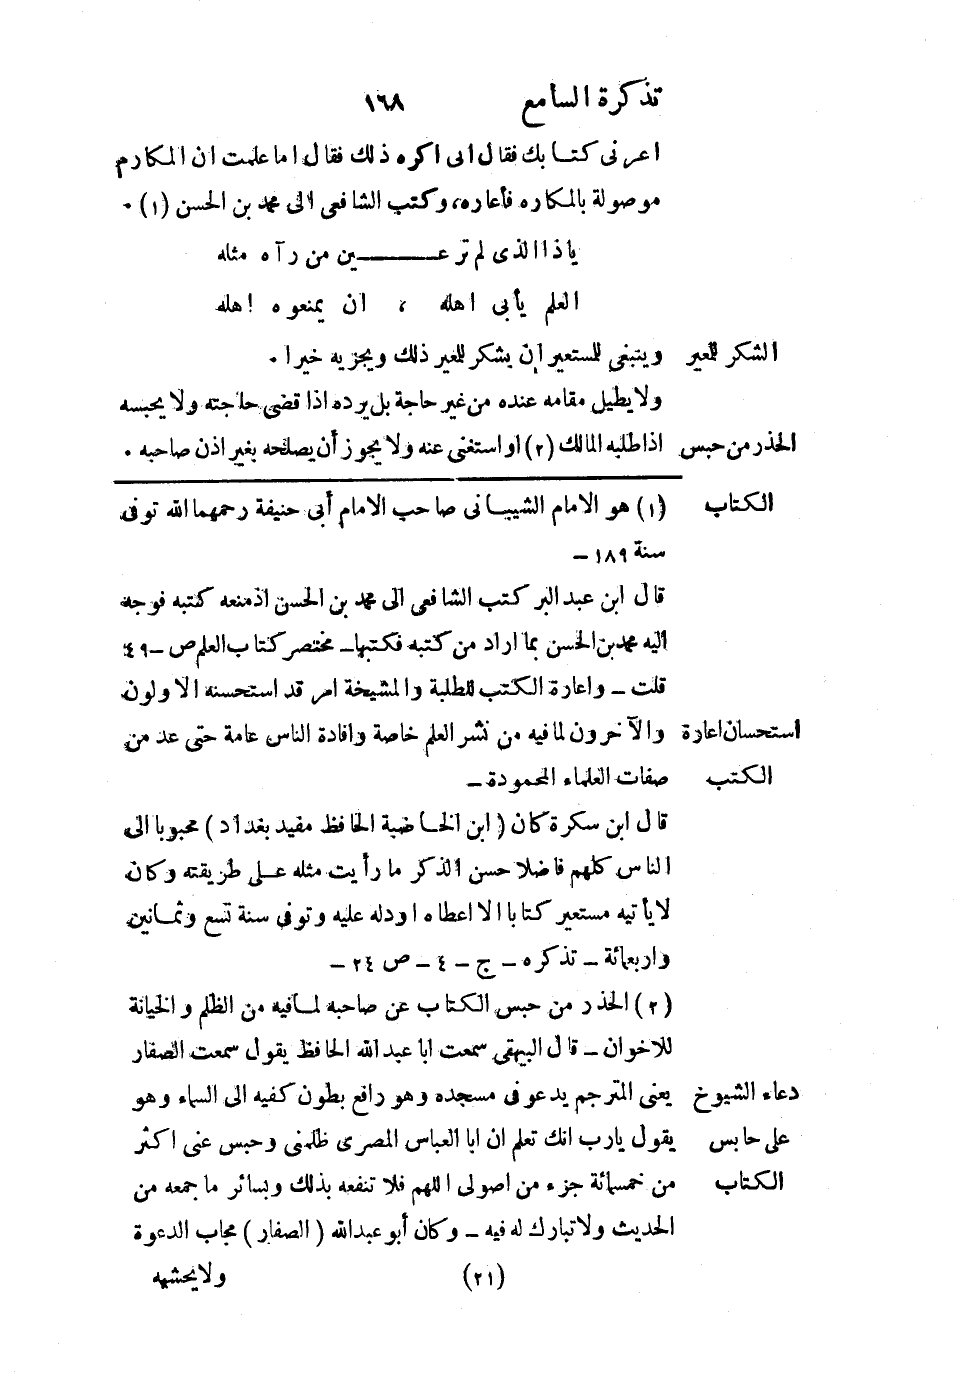 تذكرة السامع ١٦٨
اعرنى كتابك فقال انى اكره ذلك فقال اما علمت ان المكارم
موصولة بالمكاره فأعاره، وكتب الشافعى الى محمد بن الحسن (١) .
ياذا الذى لم تر عــــــــــين من رآه مثله
العلم يأبى اهله ، ان يمنعوه اهله
الشكر للمعير وينبغى للمستعير ان يشكر للمعير ذلك ويجزيه خيرا .
ولا يطيل مقامه عنده من غير حاجة بل يرده اذا قضى حاجته ولا يحبسه
الحذر من حبس اذا طلبه المالك (٢) او استغنى عنه ولا يجوز أن يصلحه بغير اذن صاحبه .
الكتاب (١) هو الامام الشيبانى صاحب الامام أبى حنيفة رحمهما الله توفى
سنة ١٨٩ –
قال ابن عبد البر كتب الشافعى الى محمد بن الحسن اذمنعه كتبه فوجه
اليه محمد بن الحسن بما اراد من كتبه فكتبها – مختصر كتاب العلم ص – ٤٩
قلت – واعارة الكتب للطلبة والمشيخة امر قد استحسنه الاولون
استحسان اعارة والآخرون لما فيه من نشر العلم خاصة وافادة الناس عامة حتى عد من
الكتب صفات العلماء المحمودة –
قال ابن سكرة كان ( ابن الخاضبة الحافظ مفيد بغداد ) محبوبا الى
الناس كلهم فاضلا حسن الذكر ما رأيت مثله على طريقته وكان
لا يأتيه مستعير كتابا الا اعطاه اودله عليه وتوفى سنة تسع وثمانين
واربعمائة – تذكره – ج – ٤ – ص ٢٤ –
(٢) الحذر من حبس الكتاب عن صاحبه لما فيه من الظلم والخيانة
للاخوان – قال البيهقى سمعت ابا عبد الله الحافظ يقول سمعت الصفار
دعاء الشيوخ يعنى المترجم يدعو فى مسجده وهو رافع بطون كفيه الى السماء وهو
على حابس يقول يارب انك تعلم ان ابا العباس المصرى ظلمنى وحبس عنى اكثر
الكتاب من خمسمائة جزء من اصولى اللهم فلا تنفعه بذلك وبسائر ما جمعه من
الحديث ولا تبارك له فيه – وكان أبو عبدالله ( الصفار ) مجاب الدعوة
(٢١) ولايحشبه